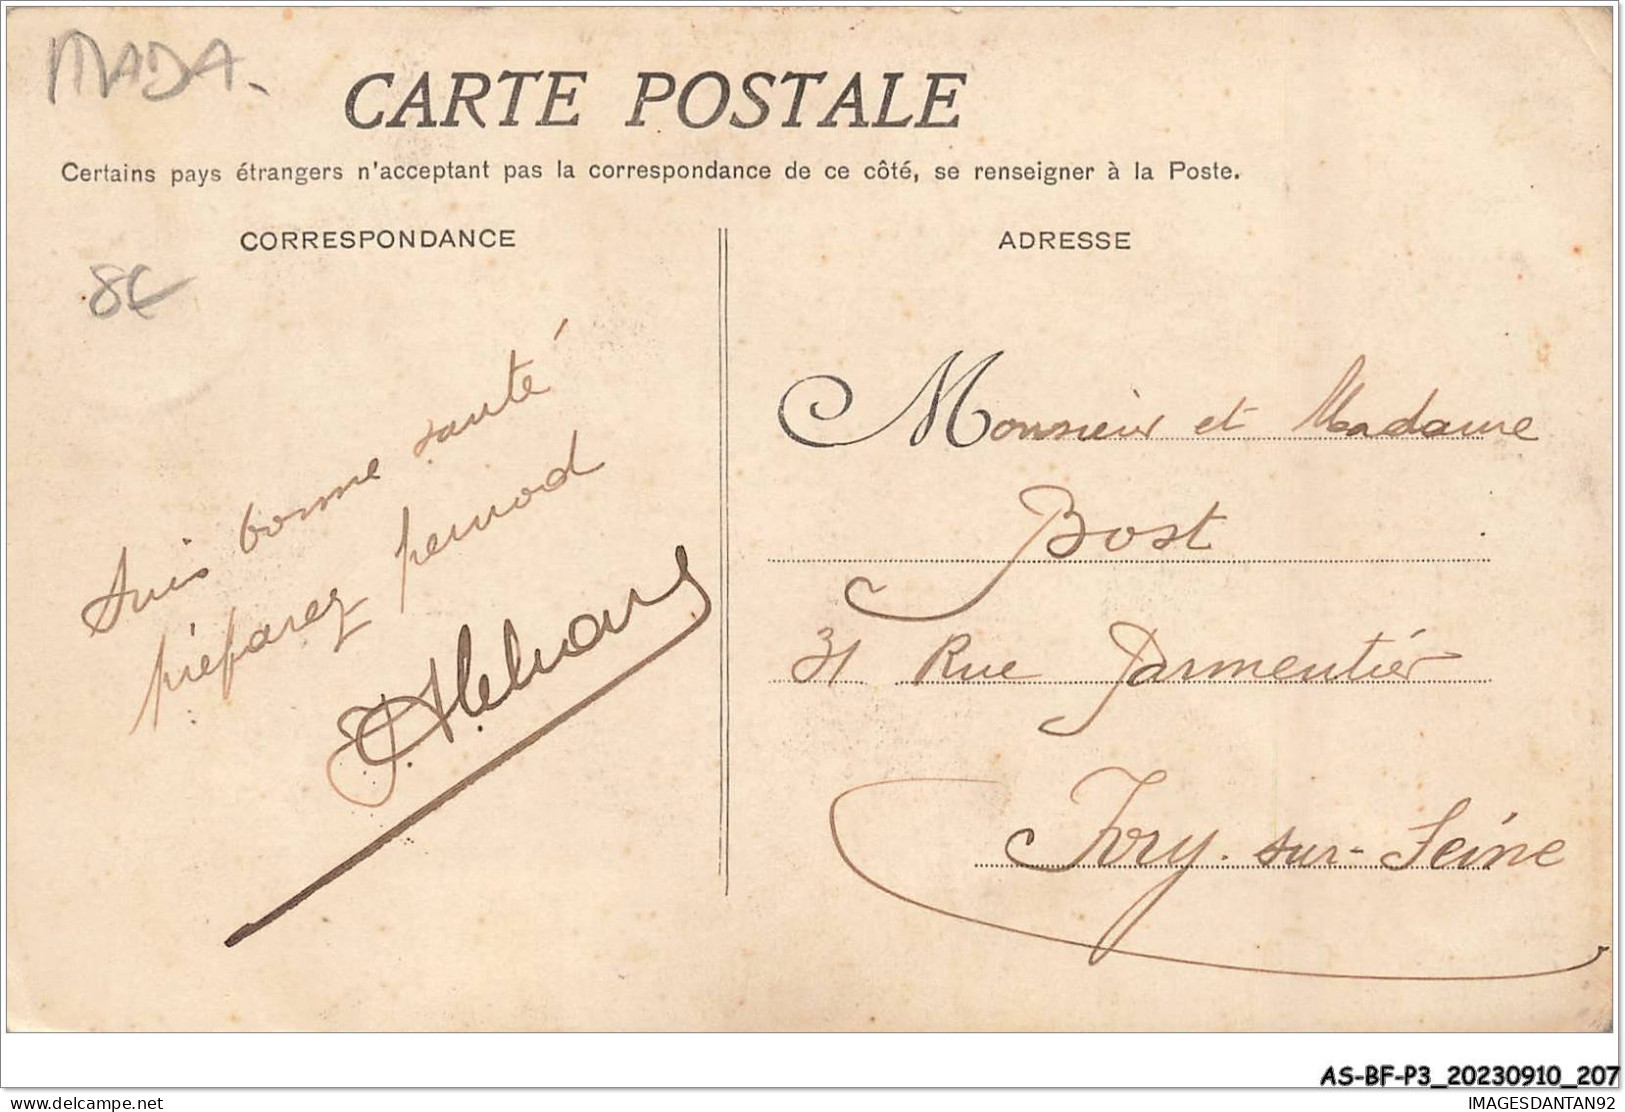 MADA.
CARTE POSTALE
Certains pays étrangers n'acceptant pas la correspondance de ce côté, se renseigner à la Poste.
CORRESPONDANCE
8€
Suis bonne santé
préparez pernod
ADRESSE
Monsieur et Madame
Bost
31 Rue Parmentier
Ivry-sur-Seine
AS-BF-P3_20230910_207
delcampe.net
IMAGESDANTAN92